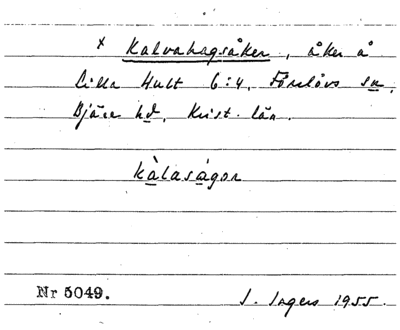 x Kalvahagsåker, åker å
Lilla Hult 6:4, Förslövs sn,
Bjäre hd, Krist. län.
kàlasågor
Nr 5049.
I. Ingers 1955.